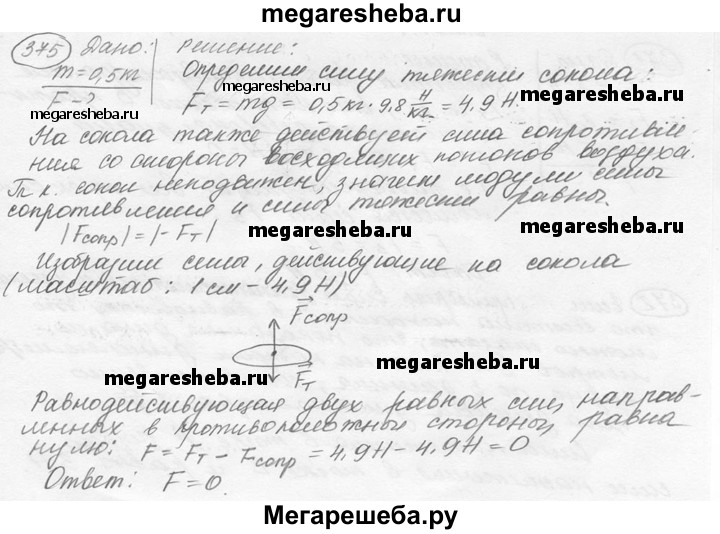 megaresheba.ru
375 Дано: Решение:
m=0,5кг Определим силу тяжести сокола:
F-? Fт = mg = 0,5кг·9,8 Н/кг = 4,9 Н.
megaresheba.ru megaresheba.ru
На сокола также действует сила сопротивле-
ния со стороны восходящих потоков воздуха.
megaresheba.ru megaresheba.ru
Т.к. сокол неподвижен, значит модули силы
сопротивления и силы тяжести равны.
|Fсопр|=|-Fт|
megaresheba.ru megaresheba.ru
Изобразим силы, действующие на сокола
(масштаб: 1см - 4,9Н)
Fсопр
megaresheba.ru
Fт
megaresheba.ru
Равнодействующая двух равных сил, направ-
ленных в противоположные стороны, равна
нулю: F = Fт - Fсопр = 4,9Н - 4,9Н = 0
Ответ: F=0.
Мегарешеба.ру